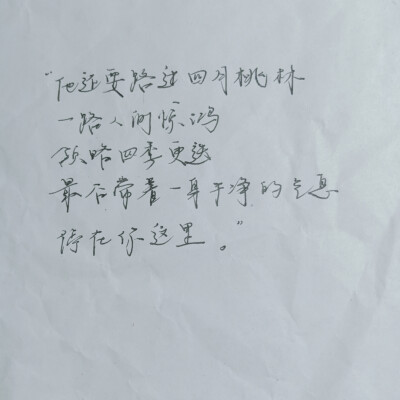 “他还要路过四月桃林
一路人间惊鸿
领略四季更迭
最后带着一身干净的气息
停在你这里。”